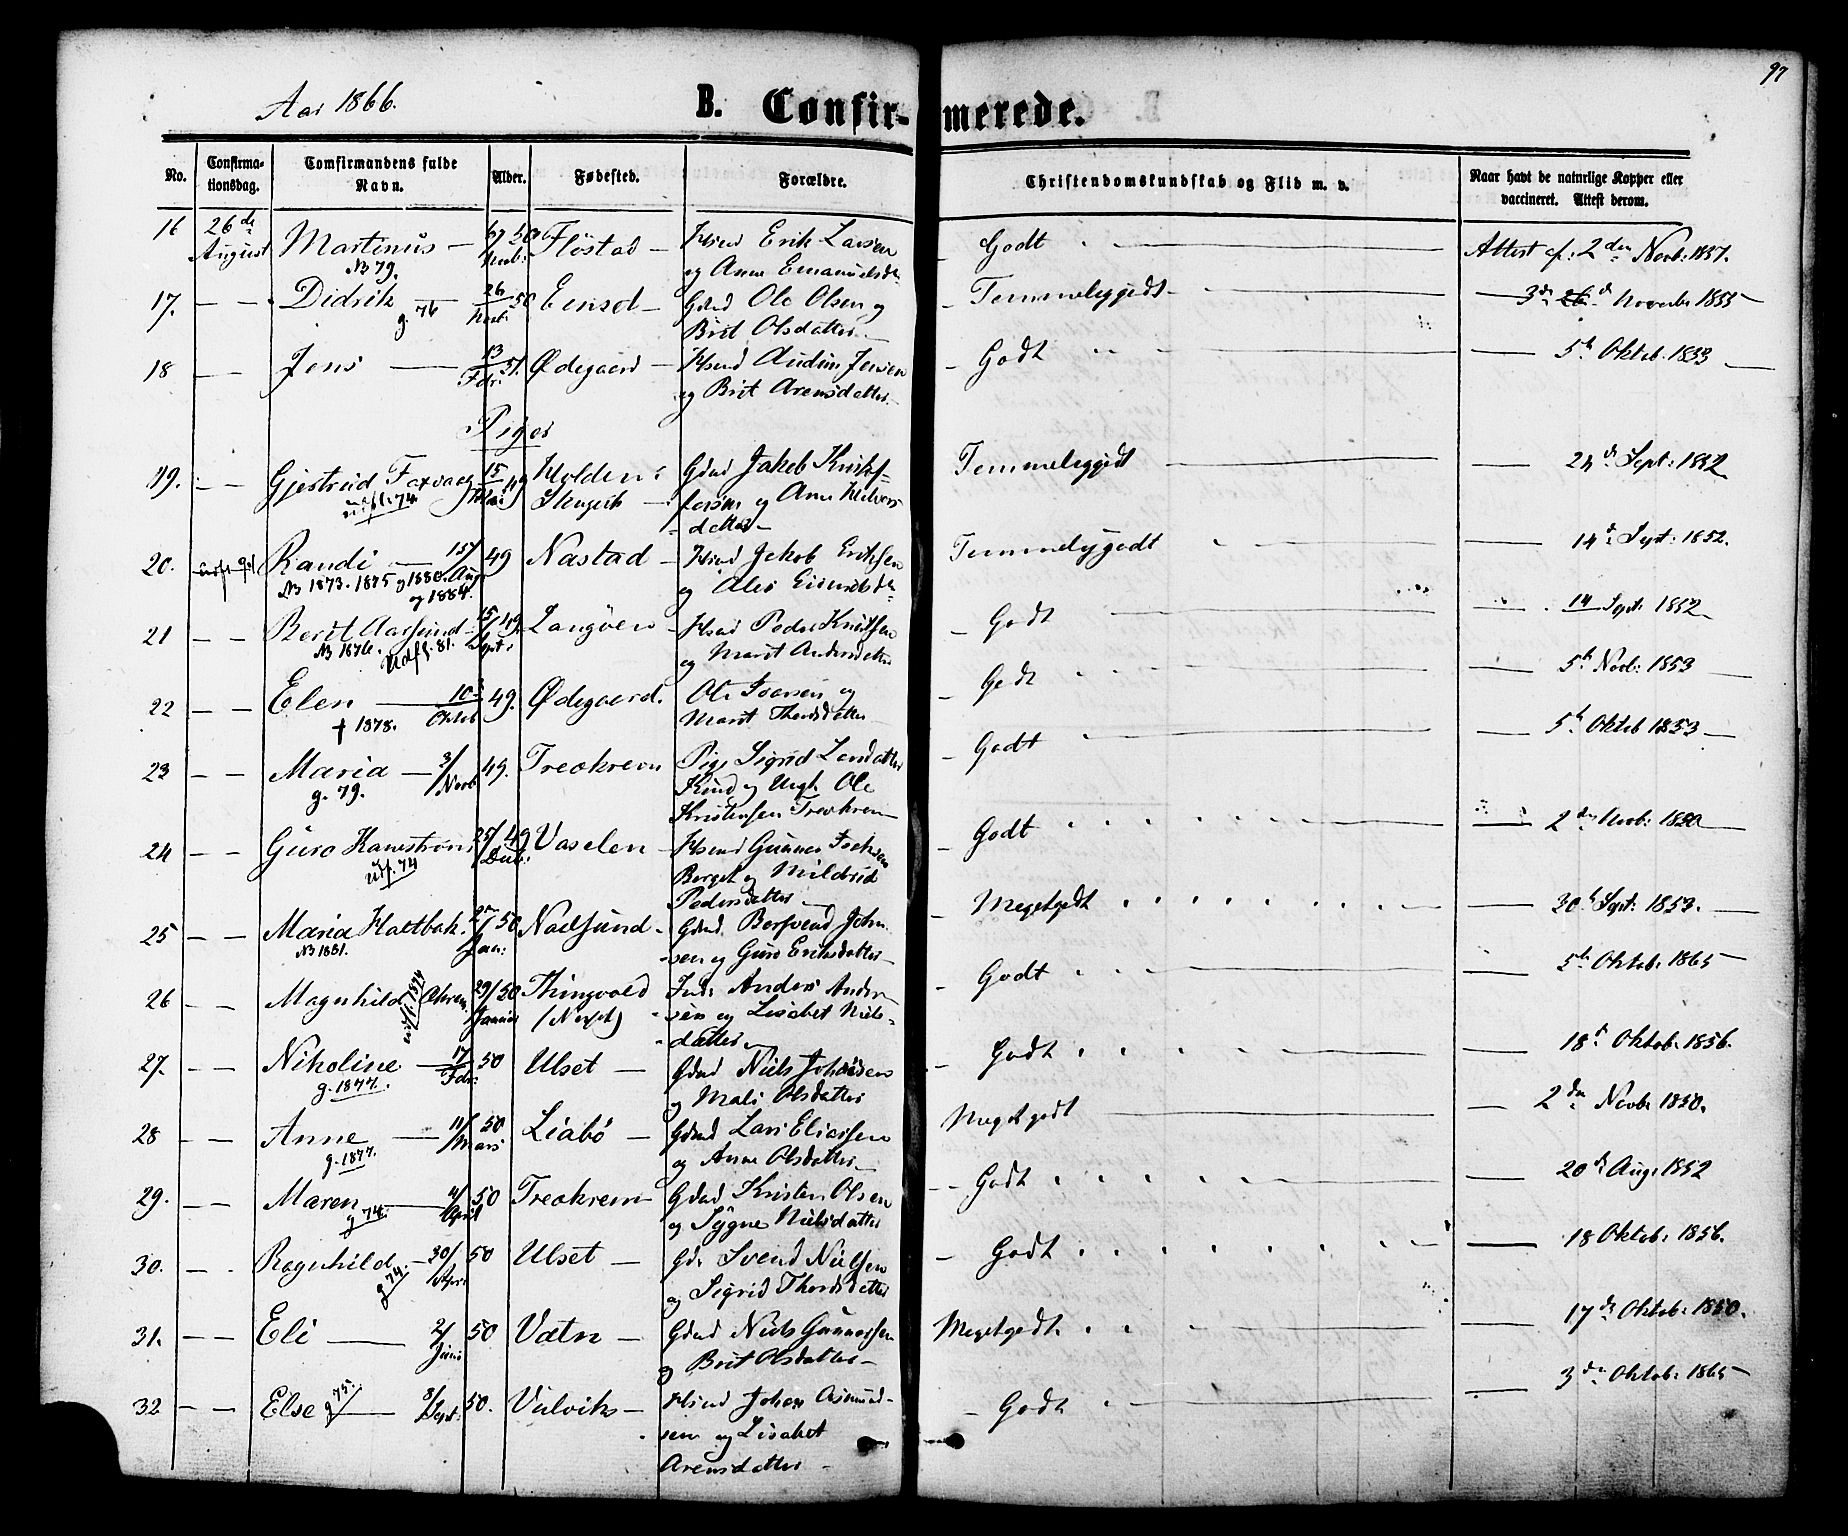 97
Aar 1866.
B. Confirmerede.
No. Confirmationsdag. Comfirmandens fulde Navn. Alder. Fødested. Forældre. Christendomskundskab og Flid m. v. Naar havt de naturlige Kopper eller vaccineret. Attest derom.
16 26de August Martinus — Novb: 50 Fløstad — Erik Larsen
N3 79. og Anne Emanuelsdr
Godt Attest af: 2den Novb: 1857.
17. — — Didrik — 26/Novb: 50 Eenset — Gdmd Ole Olsen og
g. 76 Brit Olsdatter
Temmeliggodt 3de Novemb: 1855
18 — — Jens — 13/Febr: 51. Ødegaard — Hsmd Audun Jensen
og Brit Arensdatter
Godt — 5te Oktob: 1853
Piger
19. — — Gjertrud Farvaag 15/ 49 Holden i Gdmd Jakob
udfl. 74 og Anne
datter
Temmeliggodt — Sept: 1852
20. Randi — 15/Aug 49 Nastad — Hsmd Jakob Eriksen
N3 1873. 1875 og 1880. og 1884. og
Temmeliggodt 14d Sept: 1852.
21 — — Berit Aarsund 15/Sept: 49. Langøen — Hsmd Peder Knudsen
N3 1876. Udfl. 81. og Marit Andersdatter
Godt — 14 Sept: 1852
22 — — Elen — 10/Oktob 49. Ødegaard. Ole Iversen og
† 1878. Marit Thordsdatter
Godt — 5te Novb: 1853
23 — — Maria — 3/Novb 49. Treokrem Pige Sigrid Larsdatter
g. 79. og Ungk. Ole
Kristensen Treokrem
Godt — 5te Oktob 1853
24 — — Guro Kanestrøm 25/Decb: 49 Vaselen — Hsmd Gunner
udf. 74 Berget og Mildrid
Pedersdatter
Godt — 2den Novb: 1850
25 — — Maria Hattbak. 50 Nadsund — Gdmd. John-
N3 1881. Jan: sen og Guro Eriksdatter
Megetgodt — 30te Sept: 1853.
26 — — Magnhild Økrem 29/Januar 50 Thingvold Anders Ander-
udfl. 1874 (Nesset) sen og Lisabet Niels-
datter
Godt — 5te Oktob: 1865
27. — — Nikoline — 17/Febr: 50 Ulset — Gdmd Niels
g. 1877. og Mali Olsdatter
Godt — 18d Oktob: 1856.
28 — — Anne — 11/Mars 50 Liabø — Gdmd Lars Eliassen
g. 1877. og Anne Olsdatter
Megetgodt — 2den Novb 1850.
29. — — Maren 4/April 50 Treokrem — Gdmd Kristen Olsen
g 74. og Sygne Nielsdatter
Godt — 20de Aug: 1852
30. — Ragnhild — 30/Apr: 50 Ulset — Gdr Svend Nielsen
g 74. og Sigrid Thordsdatter
Godt — 18 Oktob: 1856.
31. — — Eli — 2/Juni 50 Vatn — Gdmd Niels Gunnersen
og Brit Olsdatter
Megetgodt — 17de Oktob: 1850.
32 — — Else — 8/Sept: 50. Vulvik — Hsmd Johan Asmund-
g 75. sen og Lisabet
Arensdatter
Godt — 3die Oktob: 1865